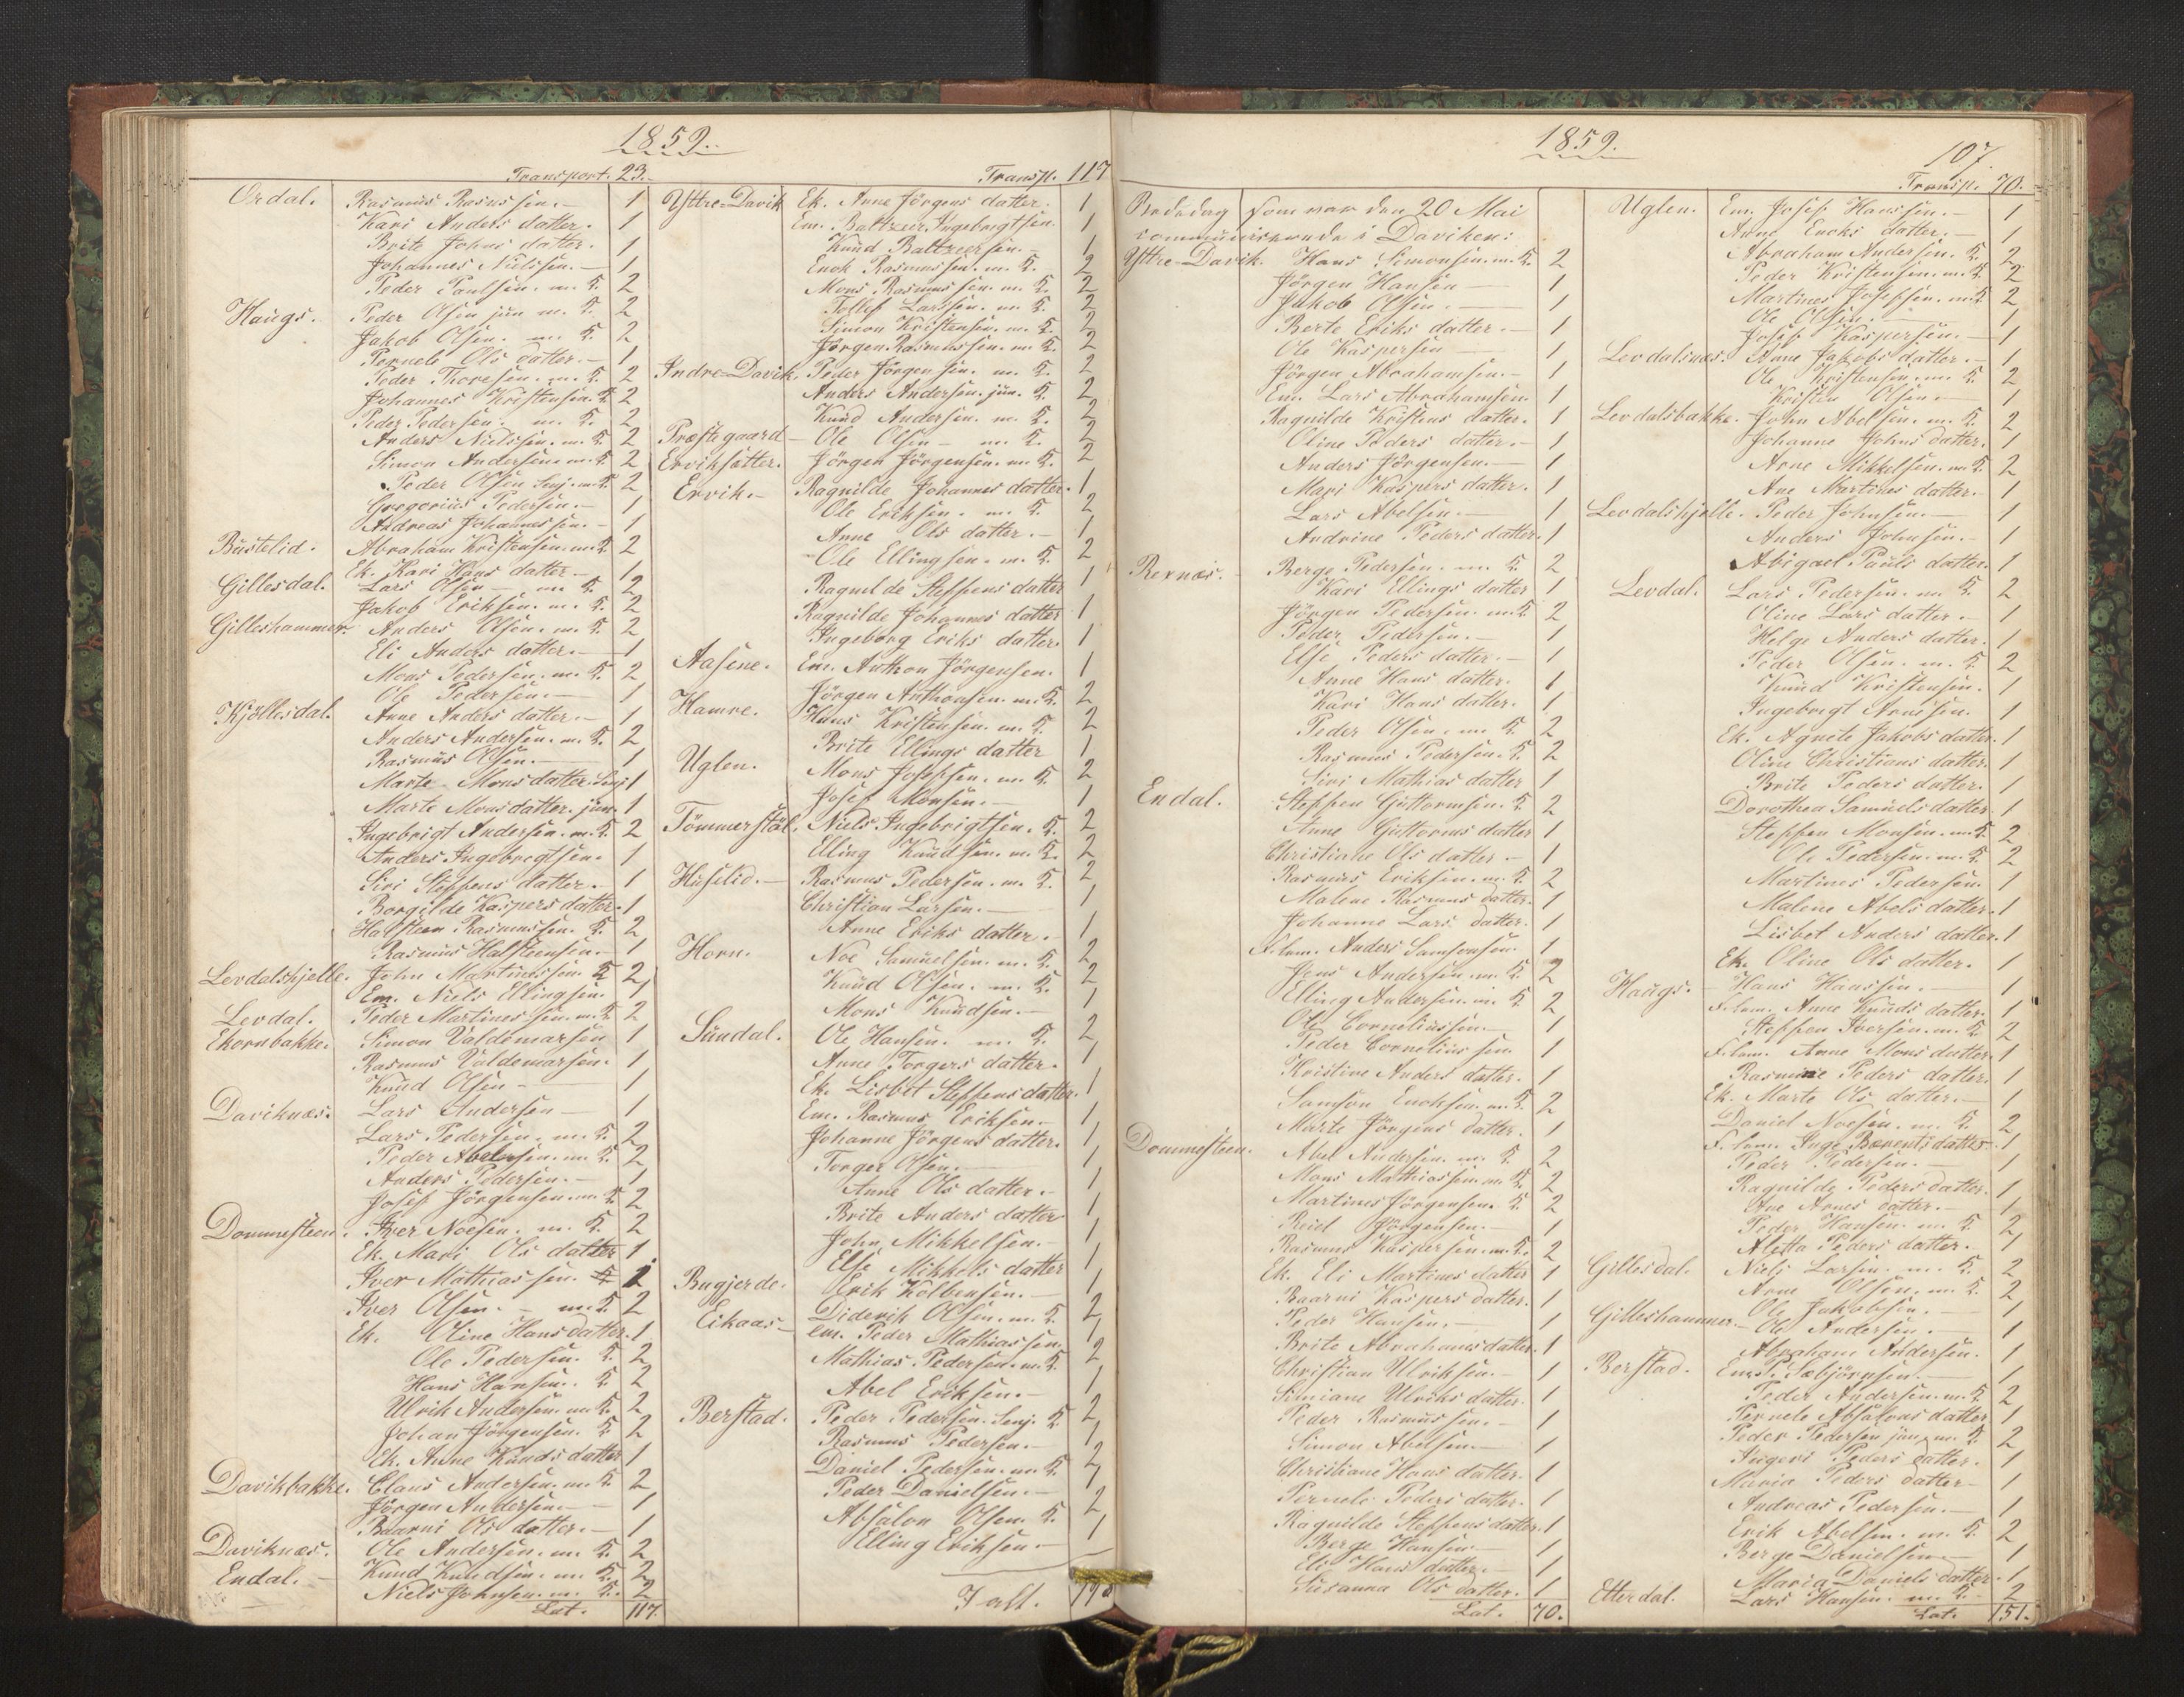 1859.
Transport. 23.
Ordal. Rasmus Rasmssen. 1
Kari Anders datter. 1
Brite Johns datter. 1
Johannes Nielssen. 1
Peder Paulsen. m. K. 2
Haugs. Peder Olsen jun m. K. 2
Jakob Olsen. m. K. 2
Pernele Ols datter. 1
Peder Thoresen. m. K. 2
Johannes Kristensen. K. 2
Peder Pedersen. m. K. 2
Anders Nielssen. m. K. 2
Simon Andersen. m. K. 2
Peder Olsen Senj. m. K. 2
Gregorius Pedersen. 1
Andreas Johannessen. 1
Bustelid. Abraham Kristensen. m. K. 2
Ek. Kari Hans datter. 1
Gillesdal. Lars Olsen m. K. 2
Jakob Eriksen. m. K. 2
Gilleshammer. Anders Olsen. m. K. 2
Eli Anders datter. 1
Mons Pedersen. m. K. 2
Ole Pedersen. 1
Kjöllesdal. Anne Anders datter. 1
Anders Andersen. m. K. 2
Rasmus Olsen. 1
Marte Monsdatter. Senj 1
Marte Monsdatter. jun. 1
Ingebrigt Andersen. m. K. 2
Anders Ingebregtsen. 1
Siri Steffens datter. 1
Borgilde Kaspers datter. 1
Halsteen Rasmussen. K. 2
Rasmus Halsteensen. 1
Levdalshjelle. John Martinussen. K 2
Em. Niels Ellingsen. 1
Levdal. Peder Martinessen. m. K. 2
Ekornbakke. Simon Valdemarsen 1
Rasmus Valdemarsen. 1
Knud Olsen 1
Daviknæs. Lars Andersen 1
Lars Pedersen. m. K. 2
Peder Abelsen. m. K. 2
Anders Pedersen. 1
Josef Jörgensen. m. K. 2
Dommesteen. Iver Noesen. m. K. 2
Ek. Mari Ols datter 1
Iver Mathiassen. 1
Iver Olsen. m. K. 2
Ek. Oline Hansdatter. 1
Ole Pedersen. K. 2
Hans Hansen. K. 2
Ulrik Andersen. m. K. 2
Johan Jörgensen. K. 2
Ek. Anne Knuds datter 1
Davikbakke. Claus Andersen. m. K. 2
Jörgen Andersen. 1
Baarni Ols datter. 1
Daviknæs. Ole Andersen. m. K. 2
Endal. Knud Knudsen. m. K. 2
Niels Johnsen. m. K. 2
Lat. 117.
Transp. 117
Yttre-Davik Ek. Anne Jörgens datter. 1
Em. Baltzer Ingebregtsen. 1
Knud Baltzersen. 1
Enok Rasmussen. m. K. 2
Mons Rasmussen. m. K. 2
Tollef Larssen. m. K. 2
Simon Kristensen. m. K. 2
Jörgen Rasmussen. m. K. 2
Indre-Davik. Peder Jörgensen. m. K. 2
Anders Andersen. jun. K. 2
Knud Andersen. m. K. 2
Præstegaard Ole Olsen m. K. 2
Erviksætter. Jörgen Jörgensen. m. K. 2
Ervik. Ragnilde Johannes datter. 1
Ole Eriksen. m. K. 2
Anne Ols datter. 1
Ole Ellingsen. m. K. 2
Ragnilde Steffens datter 1
Ragnilde Johannes datter 1
Ingeborg Eriks datter. 1
Aasene. Em. Anthon Jörgensen. 1
Jörgen Anthonsen. m. K. 2
Hamre. Hans Kristensen. m. K. 2
Brite Ellings datter 1
Uglen. Mons Josefsen. m. K. 2
Josef Monsen. 1
Tömmerstöl. Niels Ingebrigtsen. K. 2
Elling Knudsen. m. K. 2
Huselid. Rasmus Pedersen. m. K. 2
Christian Larsen. 1
Anne Eriks datter. 1
Horn. Noe Samuelsen. m. K. 2
Knud Olsen. m. K. 2
Mons Knudsen. 1
Sundal. Ole Hansen. m. K. 2
Anne Torgers datter. 1
Ek. Lisbet Steffens datter. 1
Em. Rasmus Eriksen. 1
Johanne Jörgens datter. 1
Torger Olsen. 1
Anne Ols datter. 1
Brite Anders datter 1
John Mikkelsen. 1
Else Mikkels datter 1
Bugjerde. Erik Kolbensen. 1
Eikaas Diderik Olsen. m. K. 2
em. Peder Mathiassen. 1
Mathias Pedersen. m. K. 2
Abel Eriksen. 1
Berstad. Peder Pedersen. Senj. K. 2
Rasmus Pedersen. 1
Daniel Pedersen. m. K. 2
Peder Danielsen. 1
Absalon Olsen. K. 2
Elling Eriksen. 1
I alt. 198
1859.
107.
Bededag som var den 20 Mai
communiserende i Daviken:
Yttre-Davik. Hans Simonsen. m. K. 2
Jörgen Hansen 1
Jakob Olsen. 1
Berte Eriks datter. 1
Ole Kaspersen 1
Jörgen Abrahamsen. 1
Em. Lars Abrahamsen. 1
Ragnilde Kristens datter. 1
Oline Peders datter. 1
Anders Jörgensen. 1
Mari Kaspers datter. 1
Lars Abelsen. 1
Andrine Peders datter. 1
Rexnæs. Berge Pedersen. m. K. 2
Kari Ellings datter 1
Jörgen Pedersen. m. K. 2
Peder Pedersen. 1
Else Peders datter. 1
Anne Hans datter. 1
Kari Hans datter. 1
Peder Olsen. m. K. 2
Rasmus Pedersen. K. 2
Siri Mathias datter 1
Endal. Steffen Guttormsen. K. 2
Anne Guttorms datter 1
Christiane Ols datter. 1
Rasmus Eriksen. m. K. 2
Malene Rasmus datter. 1
Johanne Lars datter. 1
F. lem. Anders Samsonsen. 1
Jens Andersen. m. K. 2
Elling Andersen. m. K. 2
Ole Corneliussen. 1
Peder Corneliussen. 1
Kristine Anders datter. 1
Samson Enoksen. m. K. 2
Marte Jörgens datter. 1
Dommesteen. Abel Andersen. m. K. 2
Mons Mathiassen. m. K. 2
Martines Jörgensen. K. 2
Reid Jörgensen. 1
Rasmus Kaspersen. m. K. 2
Ek. Eli Martines datter 1
Baarni Kaspers datter. 1
Peder Hansen. 1
Brite Abrahams datter. 1
Christian Ulriksen. 1
Simiane Ulriks datter. 1
Peder Rasmussen. 1
Simon Abelsen. 1
Christiane Hans datter. 1
Pernele Peders datter. 1
Ragnilde Steffens datter. 1
Berge Hansen 1
Eli Hans datter. 1
Susanna Ols datter. 1
Lat. 70.
Transp. 70.
Uglen. Em. Josef Hanssen. 1
Anne Enoks datter. 1
Abraham Andersen. K. 2
Peder Kristensen. m. K. 2
Martines Josefsen. m. K. 2
Ole Olsen. 1
Josef Kaspersen. 1
Levdalsnæs. Anne Jakobs datter. 1
Ole Kristensen. m. K. 2
Kristen Olsen. 1
Levdalsbakke. John Abelsen. m. K. 2
Johanne Johns datter. 1
Arne Mikkelsen. m. K. 2
Ane Martines datter. 1
Levdalshjelle. Peder Johnsen. 1
Anders Johnsen. 1
Abigael Pauls datter. 1
Levdal. Lars Pedersen. m. K. 2
Oline Lars datter. 1
Helge Anders datter. 1
Peder Olsen. m. K. 2
Knud Kristensen. 1
Ingebregt Arnessen. 1
Ek. Agnete Jakobs datter. 1
Oline Christians datter. 1
Brite Peders datter. 1
Dorothea Samuels datter. 1
Steffen Monsen. m. K. 2
Ole Pedersen. m. K. 2
Martines Pedersen. 1
Malene Abels datter. 1
Lisbet Anders datter. 1
Ek. Oline Ols datter. 1
Haugs. Hans Hanssen. 1
F. lem. Anne Knuds datter. 1
Steffen Iversen. m. K. 2
F. lem. Anne Mons datter. 1
Rasmine Peders datter. 1
Ek. Marte Ols datter. 1
Daniel Noesen. m. K. 2
F. lem. Inge Berents datter. 1
Peder Pedersen. 1
Ragnilde Peders datter. 1
Ane Arnes datter. 1
Peder Hansen. m. K. 2
Aletta Peders datter. 1
Gillesdal. Niels Larsen. m. K. 2
Arne Olsen. m. K. 2
Gilleshammer. Ole Jakobsen. 1
Ole Andersen. 1
Abraham Andersen. 1
Berstad. Em. P. Sæbjörnsen. 1
Peder Andersen. m. K. 2
Pernele Absalons datter 1
Peder Pedersen jun. m. K. 2
Ingeri Peders datter. 1
Maria Peders datter 1
Andreas Pedersen. 1
Erik Abelsen. m. K. 2
Berge Danielsen 1
Maria Daniels datter. 1
Etterdal. Lars Hansen. m. K. 2
Lat. 151.